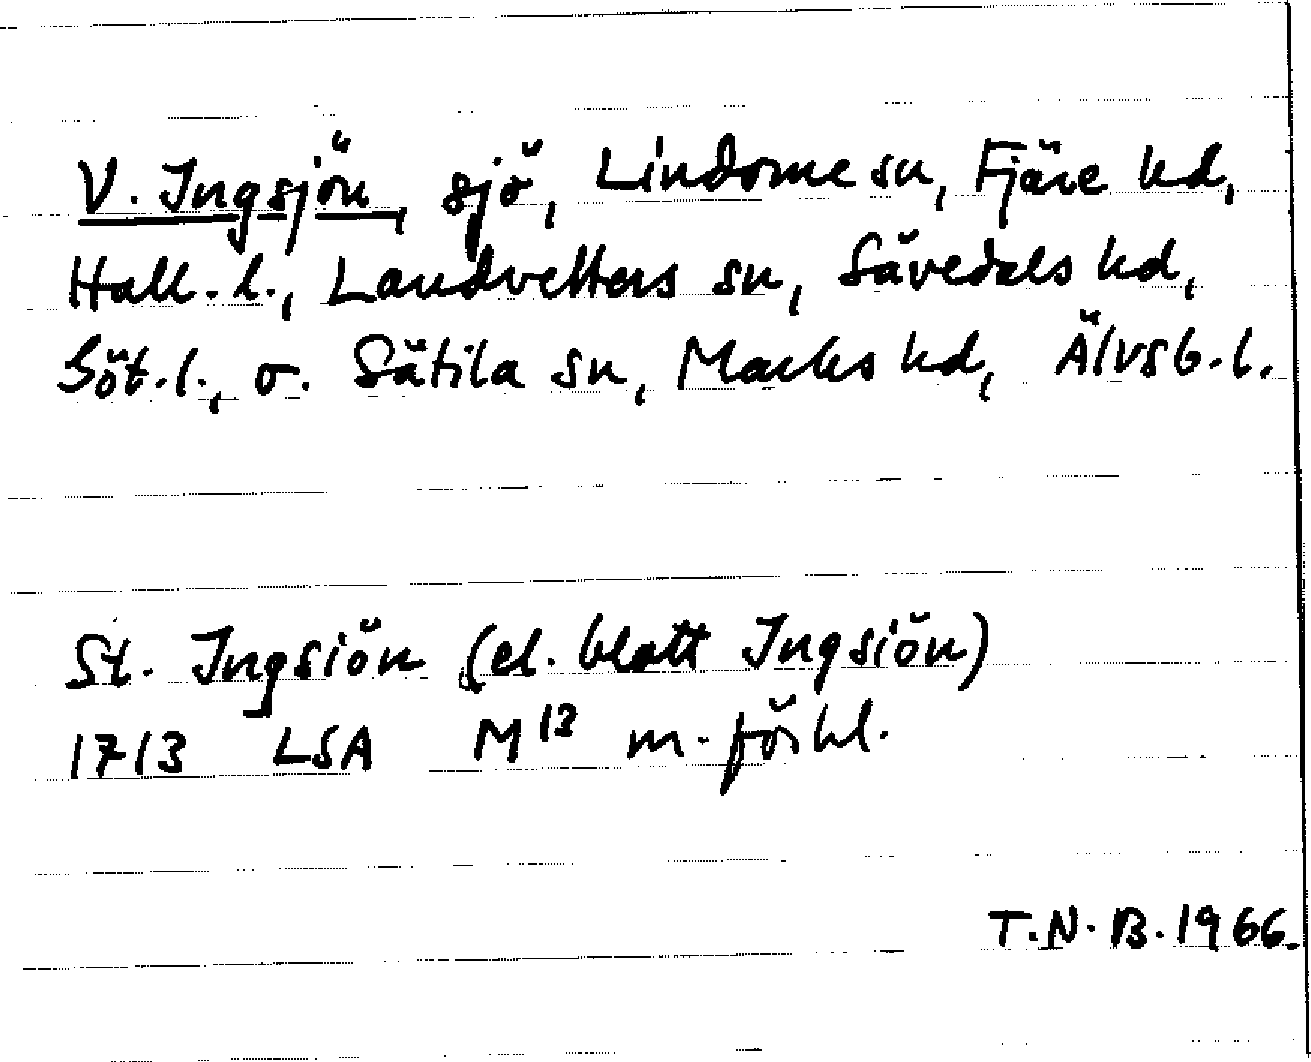 V. Ingsjön, sjö, Lindome sn, Fjäre hd,
Hall. l., Landvetters sn, Sävedals hd,
Göt. l., o. Sätila sn, Marks hd, Älvsb. l.
St. Ingsiön (el. blott Ingsiön)
1713 LSA M 12 m. förhl.
T.N.B. 1966.